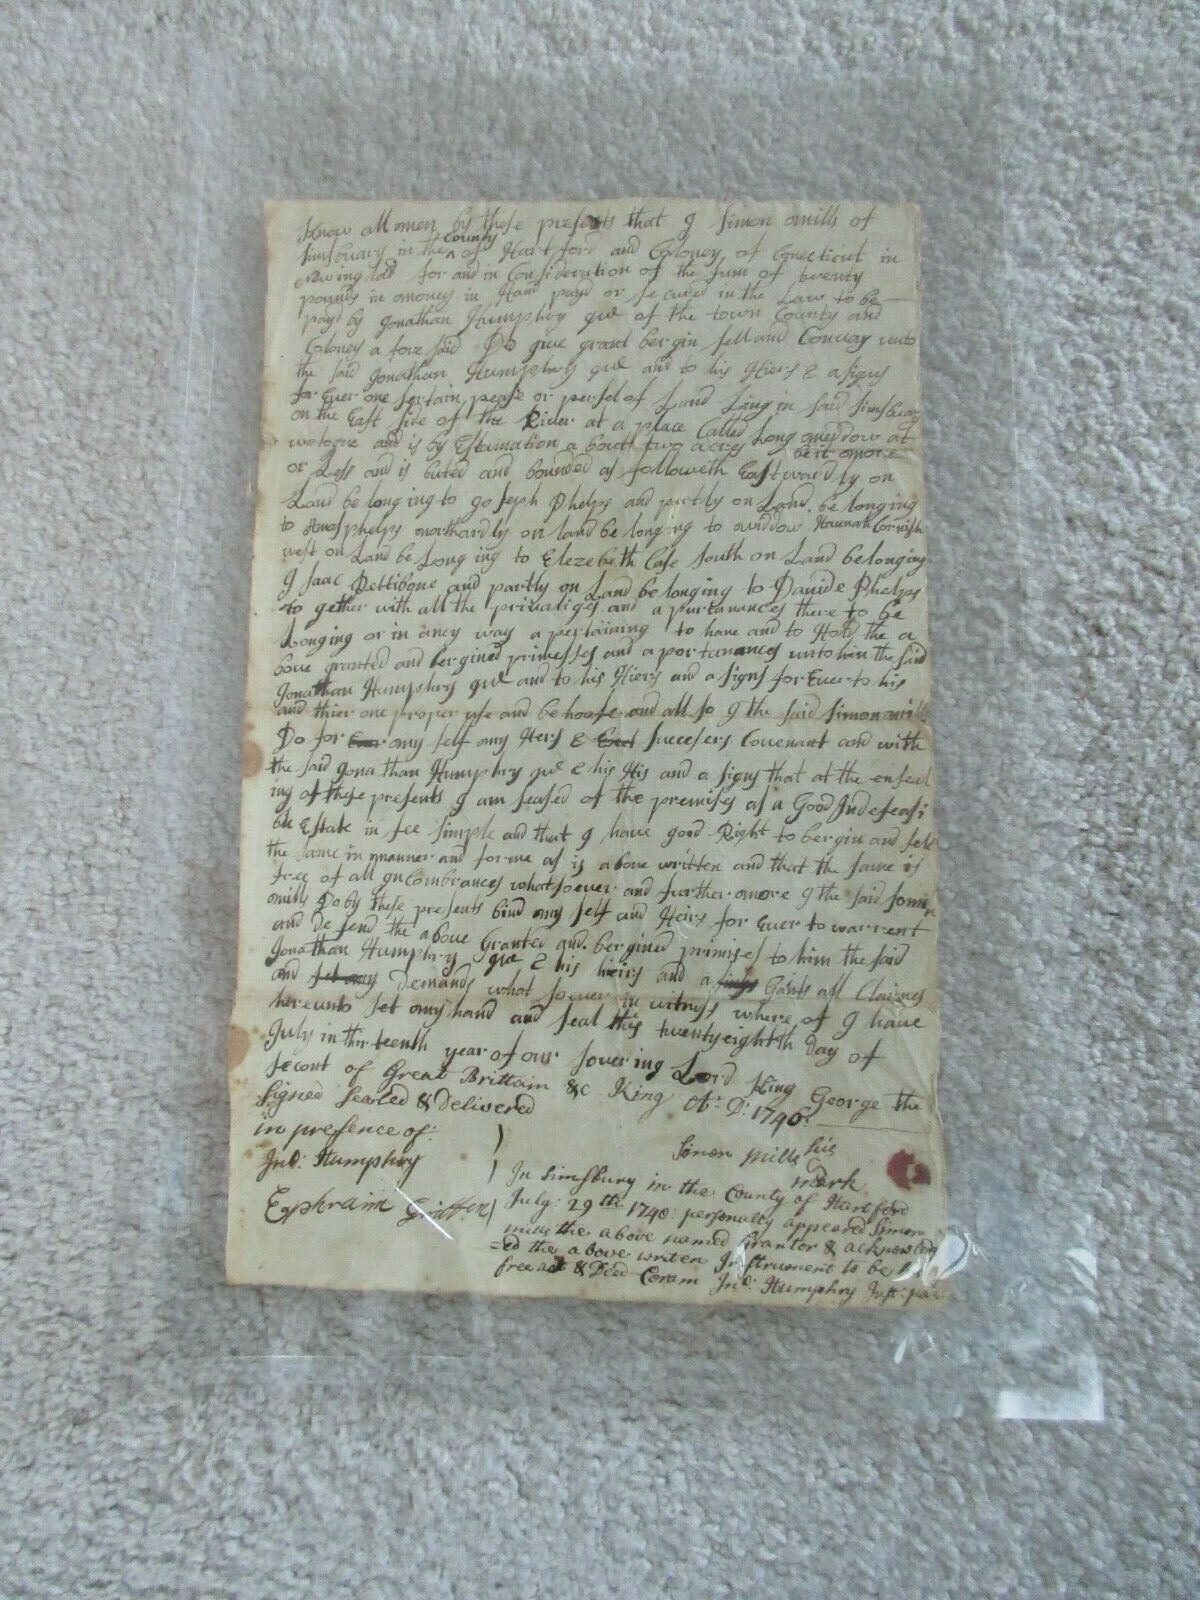 Know all men by these presents that I Simon mills of
Simsbury in the County of Hartford and Coloney of Conecticut in
for and in Consideration of the sum of twenty
pounds in money in Hand payd or secured in the Law to be
payd by Jonathan Humphry of the town County and
Coloney a fore said Do give grant bergin sell and Convay unto
the said Jonathan Humphry and to his Hiers & asigns
for Ever one sertain pease or persel of Land Lying in said Simsbury
on the East side of the River at a place Called Long meddow at
and is by Estamation a bout two acres be it more
or Less and is buted and bounded as followeth Eastwardly on
Land belonging to Joseph Phelps and partly on Land belonging
to Amos phelps northardly on land belonging to widdow Hannah Cornish
west on Land beLonging to Elezebeth Case south on Land belonging
Isaac Pettibone and partly on Land belonging to Davide Phelps
to gether with all the privaliges and a purtanances there to be
Longing or in aney way a pertaining to have and to Hold the a
bove granted and bergined primesses and a portanances unto him the said
Jonathan Humphry and to his Hiers and a signs for Ever to his
and thier one proper use and be hoofe and all so I the said simon mills
Do for my self my Hers & succesers Covenant and with
the said Jonathan Humphry & his His and a signs that at the enseal
ing of these presents I am seased of the premises as a Good Indefensi
ble Estate in fee simple and that I have good Right to bergin and sell
the same in manner and forme as is above written and that the same is
free of all Incombrances whatsoever and further more I the said
mills Do by these presents bind my self and Heirs for Ever to warrent
and Defend the above Granted and bergined primises to him the said
Jonathan Humphry & his heirs and a Gants all Claimes
and Demands what soever in witness where of I have
hereunto set my hand and seal this twentyeighth Day of
July in thirteenth year of our sovering Lord King George the
secont of Great Brittain &c King A: D: 1740
Signed Sealed & Delivered
in presence of:
Jno: Humphry
Ephraim Griffen
Simon Mills his
mark
In Simsbury in the County of Hartford
July: 29th 1740: personaly appeared Simon
mills the above named Grantor & acknowledg
=ed the above writen Instrument to be
free act & Deed Coram Jno: Humphry Just: pa